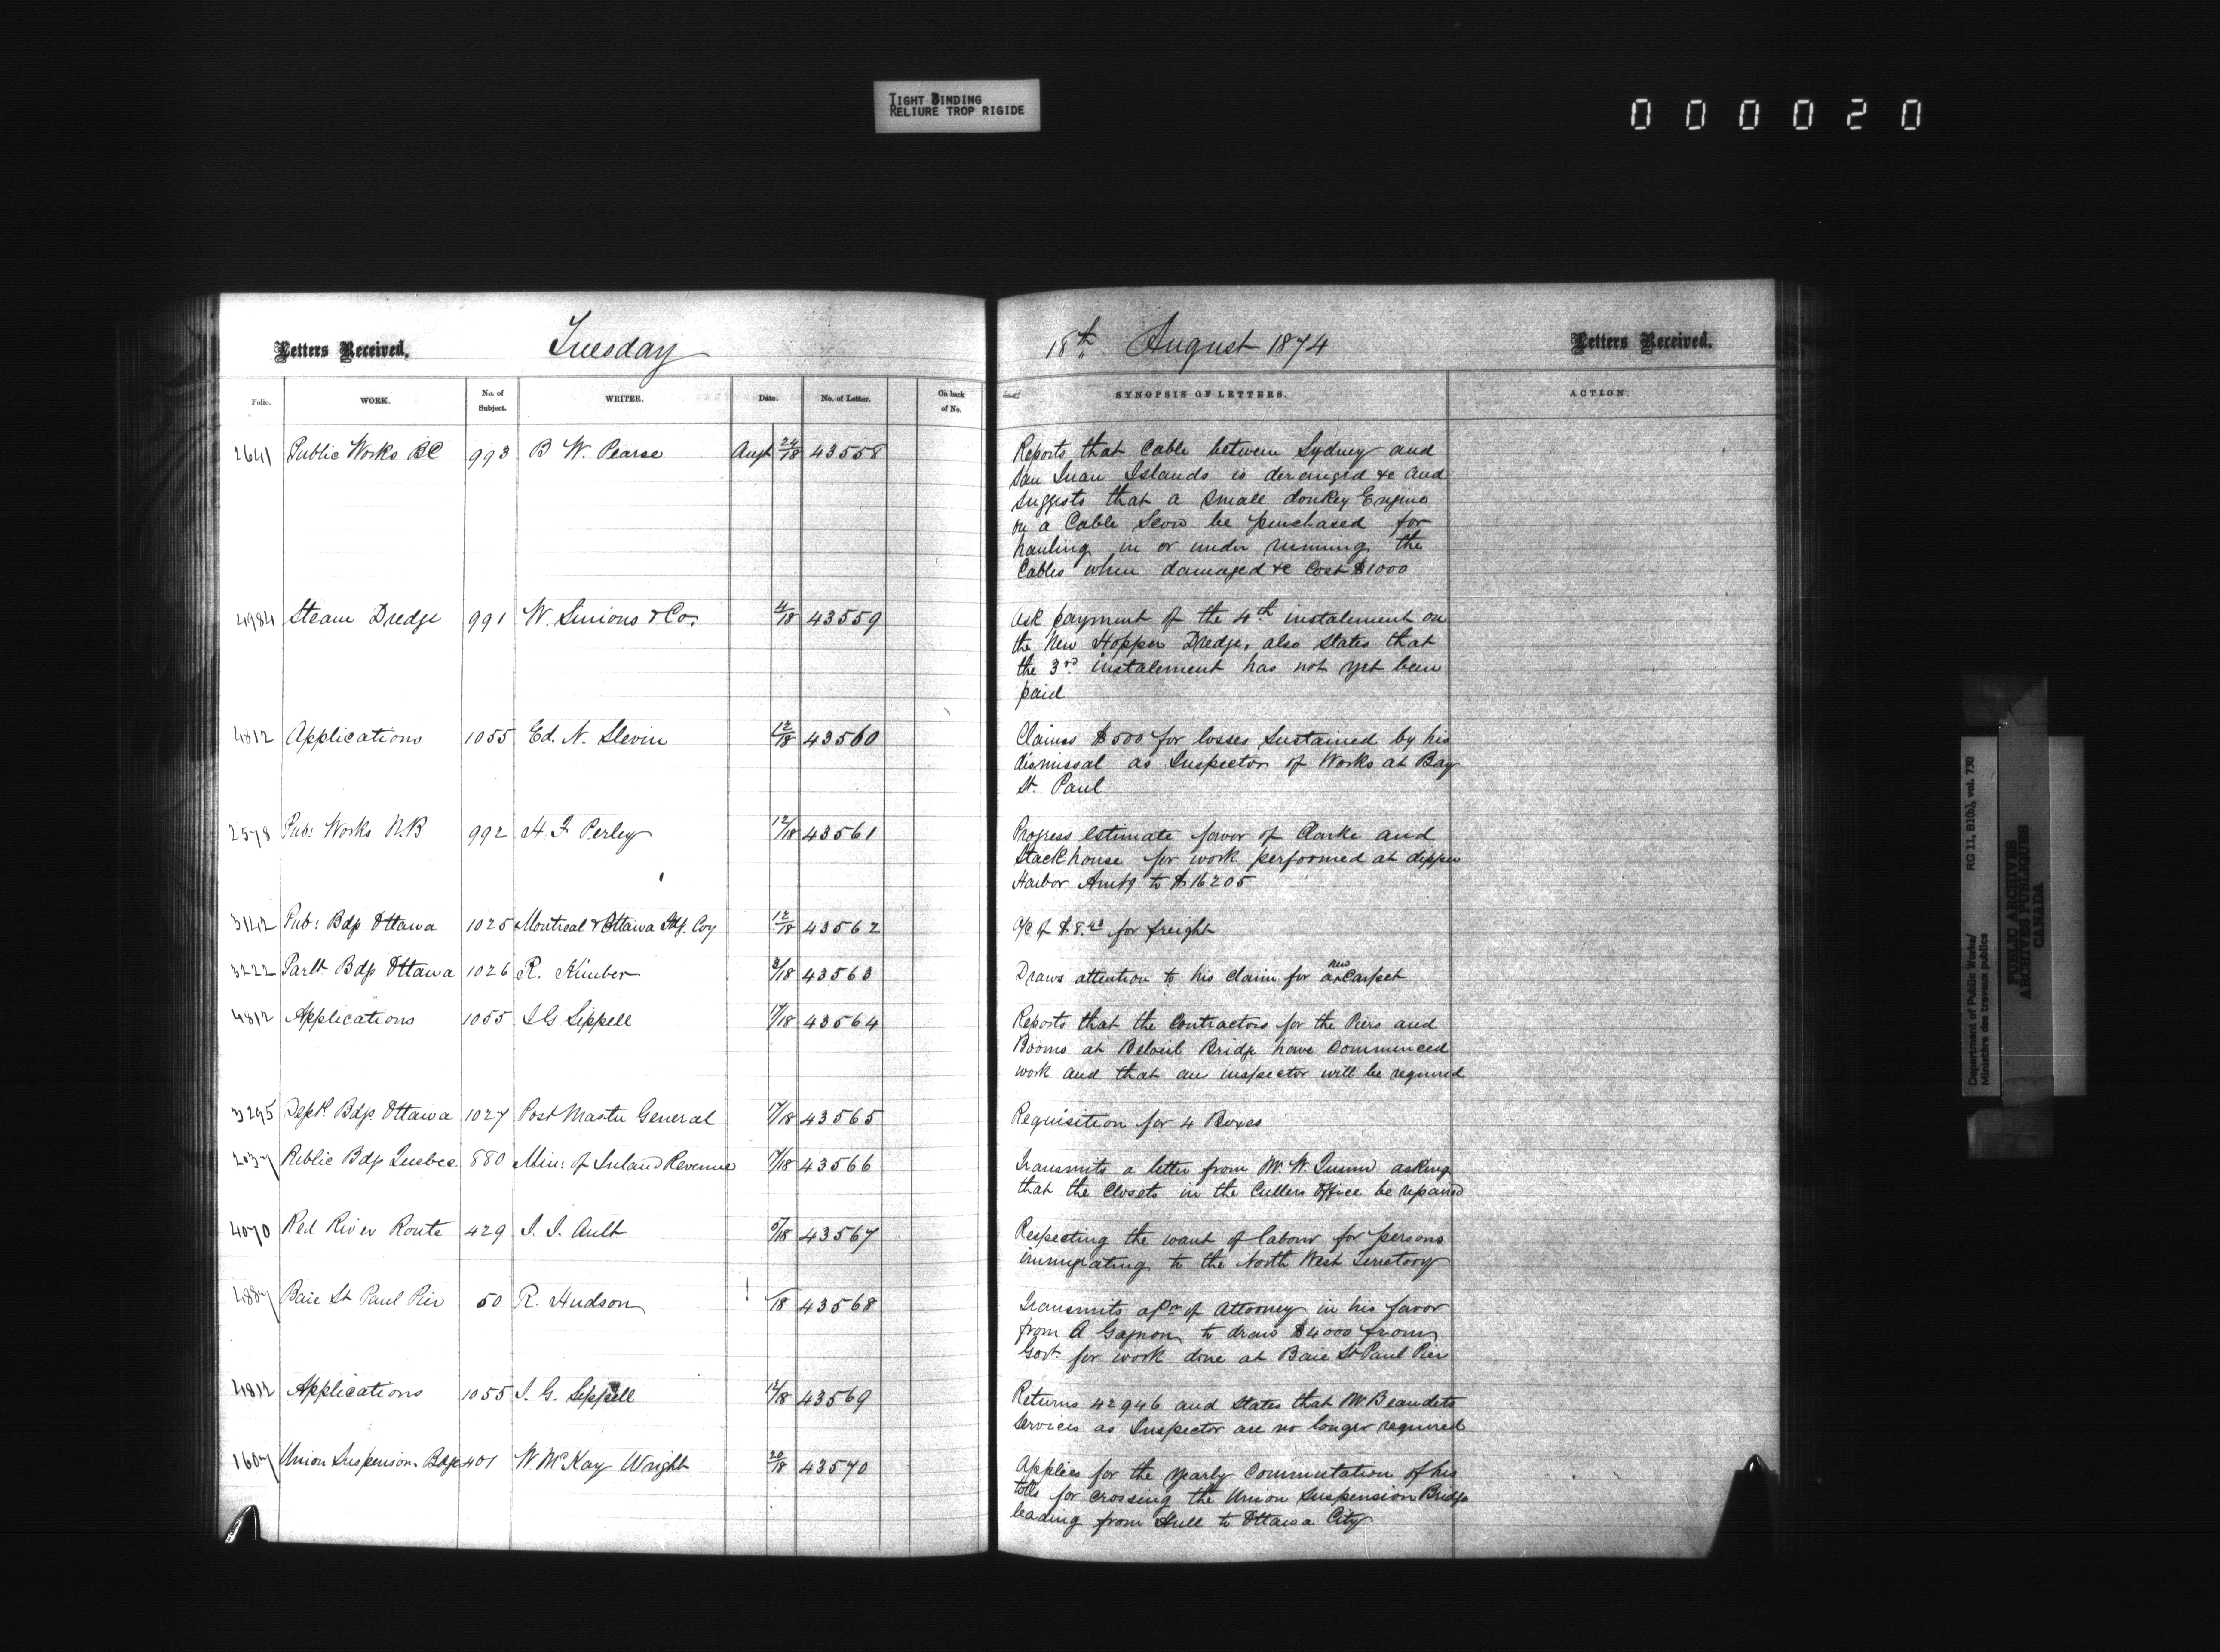 TIGHT BINDING
RELIURE TROP RIGIDE
000020
Letters Received.
Tuesday
18th August 1874
Letters Received.
Folio.
WORK.
No. of Subject.
WRITER.
Date.
No. of Letter.
On back of No.
SYNOPSIS OF LETTERS.
ACTION.
2641 Public Works BC 993 B W. Pearse Augt 24/18 43558
Reports that Cable between Sydney and
San Juan Islands is deranged &c and
suggests that a small donkey Engine
on a Cable Scow be purchased for
hauling in or under running the
Cables when damaged &c Cost $1000
4984 Steam Dredge 991 W. Simons & Co. 4/18 43559
Ask payment of the 4th instalement on
the New Hopper Dredge, also states that
the 3rd instalement has not yet been
paid
4812 Applications 1055 Ed. N. Slevin 12/18 43560
Claims $500 for losses sustained by his
dismissal as Inspector of Works at Bay
St. Paul
2578 Pub: Works N.B 992 H. F. Perley 12/18 43561
Progress estimate favor of Clarke and
Stackhouse for work performed at dipper
Harbor Amtg to $16205
3142 Pub: Bdg Ottawa 1025 Montreal & Ottawa Coy 12/18 43562
a/c of $8. for freight
3222 Parlt. Bdg Ottawa 1026 R. Kimber 3/18 43563
Draws attention to his Claim for a new Carpet
4812 Applications 1055 J G Sippell 17/18 43564
Reports that the Contractors for the Piers and
Booms at Beloeil Bridge have Commenced
work and that an inspector will be required
3295 Deptl. Bdgs Ottawa 1027 Post Master General 17/18 43565
Requisition for 4 Boxes
2037 Public Bdg Quebec 880 Min: of Inland Revenue 17/18 43566
Transmits a letter from Mr. W. Quinn asking
that the Closets in the Cullers Office be repaired
4070 Red River Route 429 J. J. Ault /18 43567
Respecting the want of labour for persons
immigrating to the North West Territory
4887 Baie St Paul Pier 50 R. Hudson /18 43568
Transmits a Pr of Attorney in his favor
from A Gagnon to draw $4000 from
Govt. for work done at Baie St Paul Pier
4812 Applications 1055 J. G. Sippell 17/18 43569
Returns 42946 and states that Mr. Beaudets
services as Inspector are no longer required
1607 Union Suspension Bdge 401 W McKay Wright 20/18 43570
Applies for the yearly Commutation of his
tolls for crossing the Union Suspension Bridge
leading from Hull to Ottawa City
Department of Public Works/ RG 11, B1(b), vol. 730
Ministère des travaux publics
PUBLIC ARCHIVES
ARCHIVES PUBLIQUES
CANADA